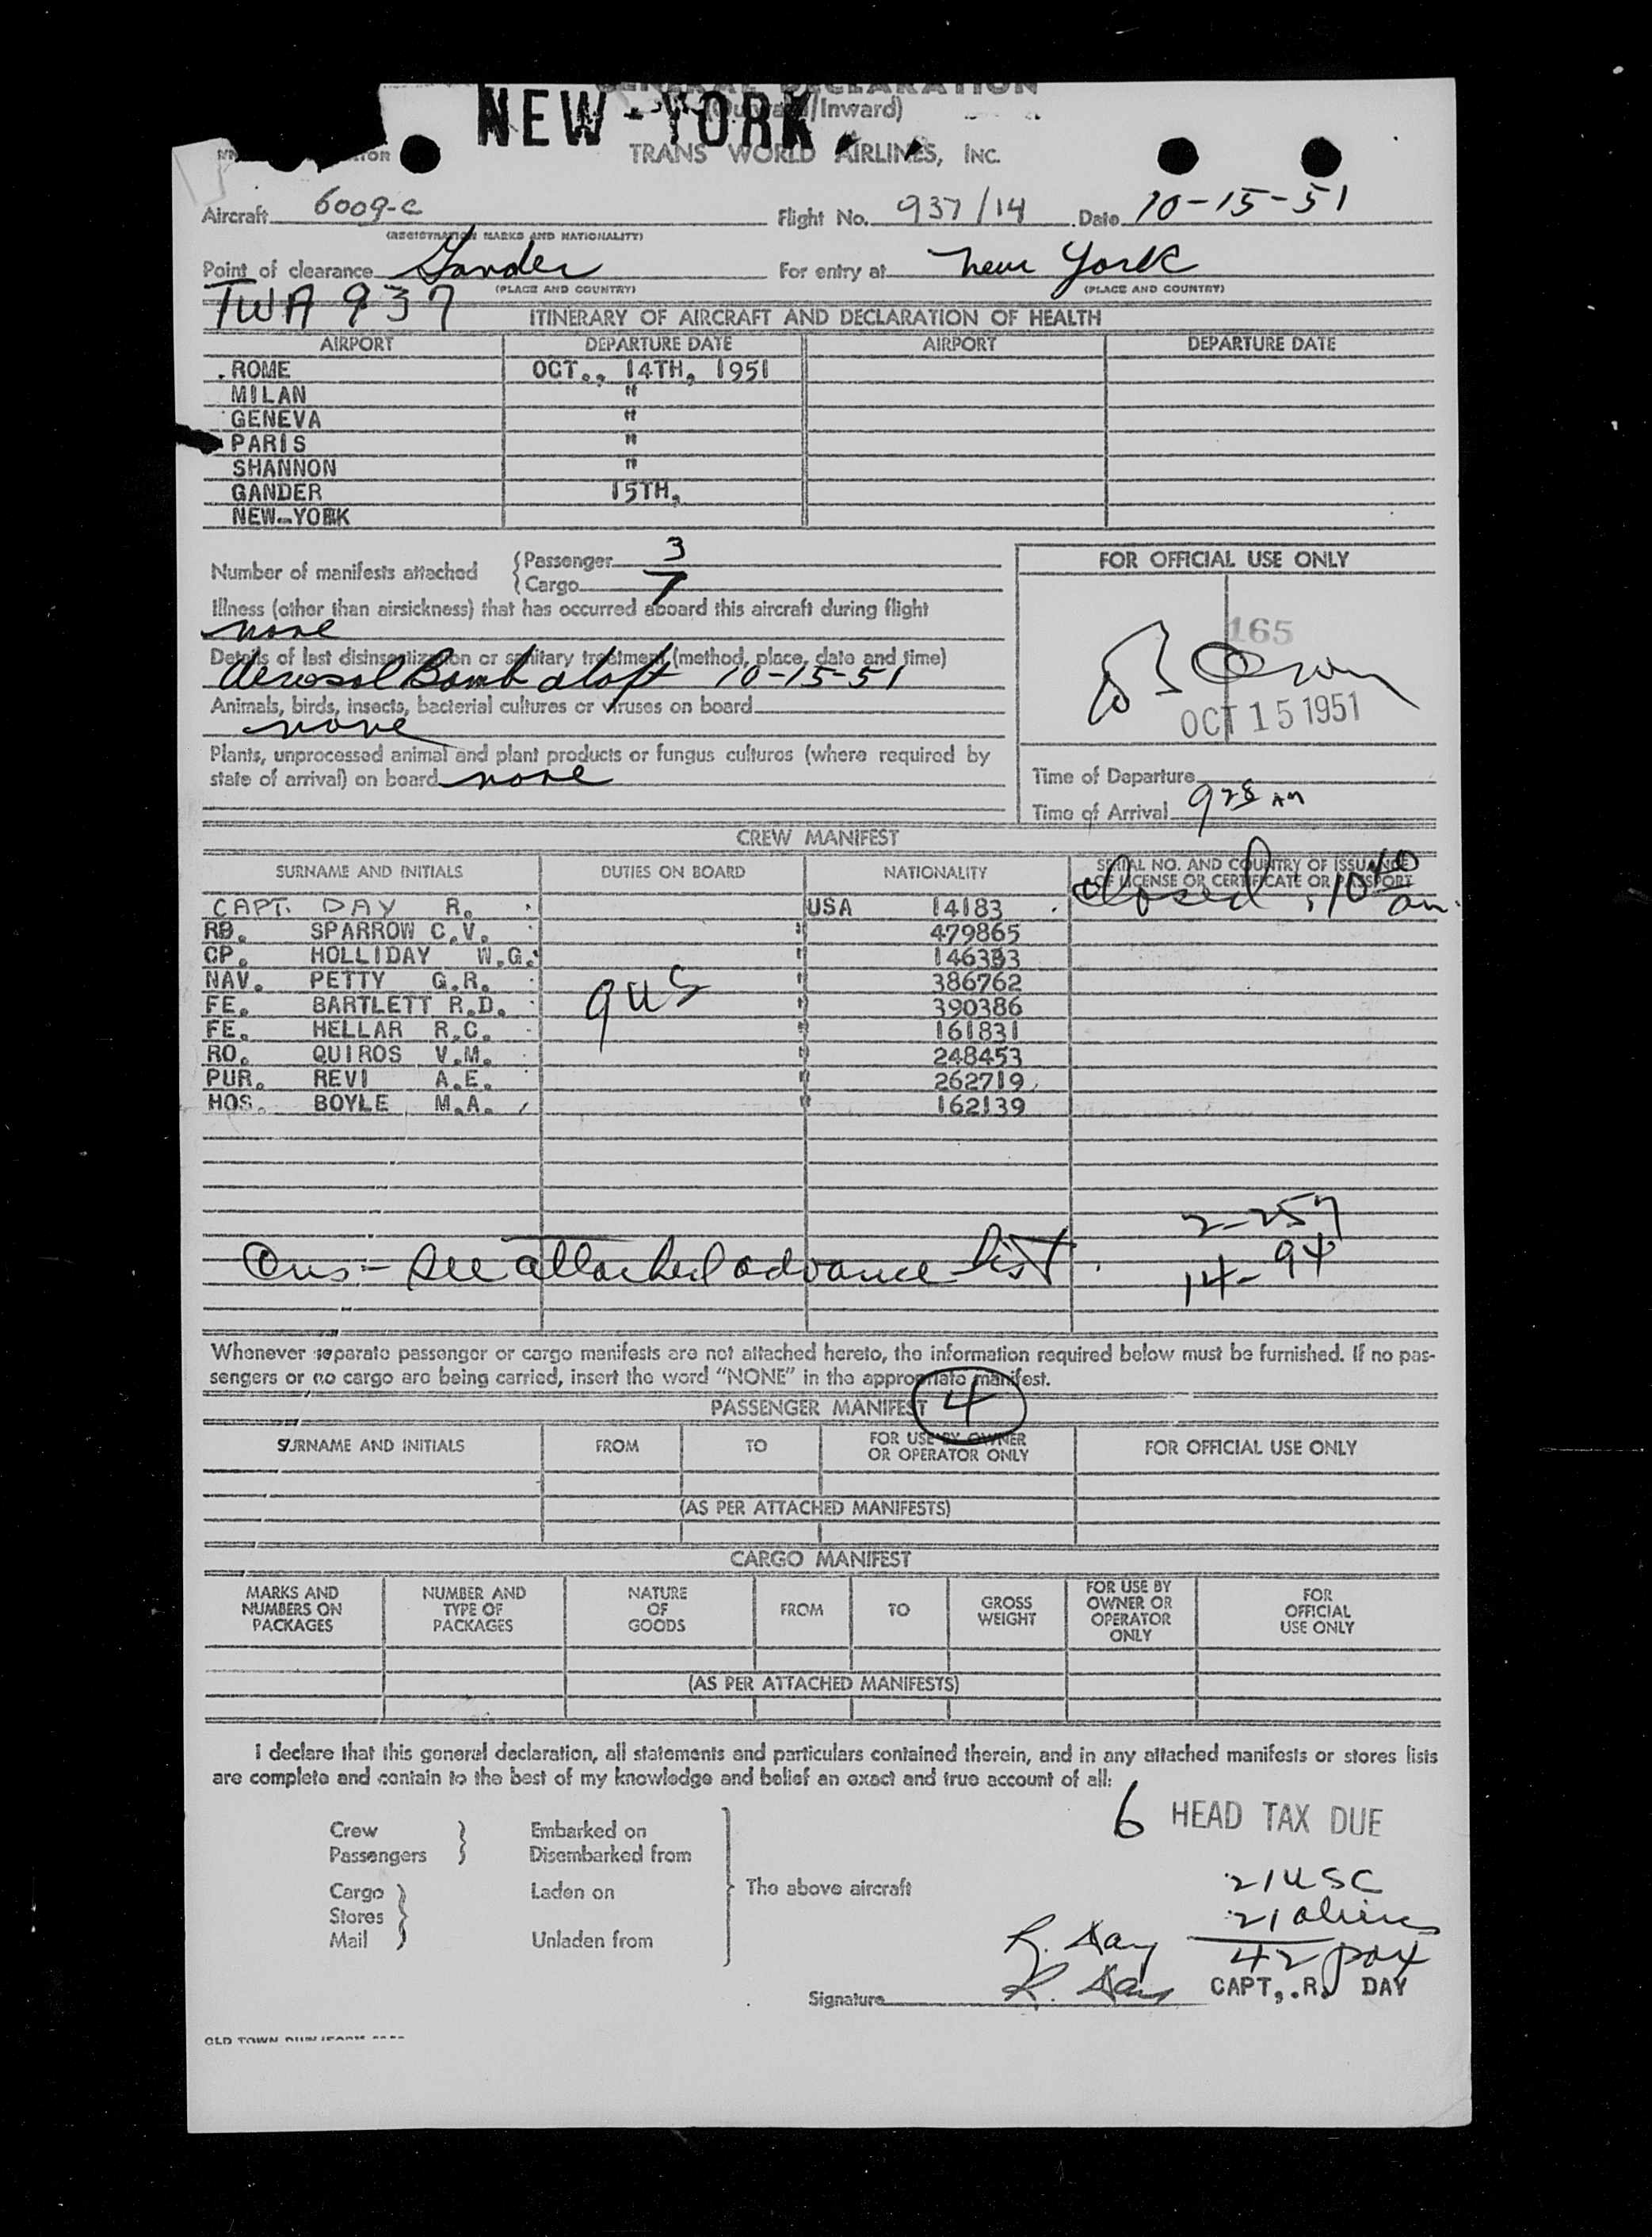 GENERAL DECLARATION
(Outward/Inward)
NEW-YORK.
TRANS WORLD AIRLINES, INC.
Aircraft 6009-C Flight No. 937/14 Date 10-15-51
(REGISTRATION MARKS AND NATIONALITY)
Point of clearance Gander For entry at New York
(PLACE AND COUNTRY) (PLACE AND COUNTRY)
TWA 937
ITINERARY OF AIRCRAFT AND DECLARATION OF HEALTH
AIRPORT DEPARTURE DATE AIRPORT DEPARTURE DATE
ROME OCT., 14TH, 1951
MILAN "
GENEVA "
PARIS "
SHANNON "
GANDER 15TH,
NEW-YORK
Number of manifests attached { Passenger 3
{ Cargo 7
Illness (other than airsickness) that has occurred aboard this aircraft during flight
none
Details of last disinsectization or sanitary treatment (method, place, date and time)
Aerosol Bomb aloft 10-15-51
Animals, birds, insects, bacterial cultures or viruses on board
none
Plants, unprocessed animal and plant products or fungus cultures (where required by
state of arrival) on board none
FOR OFFICIAL USE ONLY
165
OCT 15 1951
Time of Departure
Time of Arrival 928 AM
CREW MANIFEST
SURNAME AND INITIALS DUTIES ON BOARD NATIONALITY SERIAL NO. AND COUNTRY OF ISSUANCE
OF LICENSE OR CERTIFICATE OR PASSPORT
Closed 10 40 am.
CAPT. DAY R. USA 14183
RB. SPARROW C.V. " 479865
CP. HOLLIDAY W.G. " 146383
NAV. PETTY G.R. " 386762
FE. BARTLETT R.D. " 390386
FE. HELLAR R.C. " 161831
RO. QUIROS V.M. " 248453
PUR. REVI A.E. " 262719
HOS. BOYLE M.A. " 162139
9 US
2-257
see attached advance list. 14-94
Whenever separate passenger or cargo manifests are not attached hereto, the information required below must be furnished. If no pas-
sengers or no cargo are being carried, insert the word "NONE" in the appropriate manifest.
PASSENGER MANIFEST 4
SURNAME AND INITIALS FROM TO FOR USE BY OWNER
OR OPERATOR ONLY FOR OFFICIAL USE ONLY
(AS PER ATTACHED MANIFESTS)
CARGO MANIFEST
MARKS AND
NUMBERS ON
PACKAGES NUMBER AND
TYPE OF
PACKAGES NATURE
OF
GOODS FROM TO GROSS
WEIGHT FOR USE BY
OWNER OR
OPERATOR
ONLY FOR
OFFICIAL
USE ONLY
(AS PER ATTACHED MANIFESTS)
I declare that this general declaration, all statements and particulars contained therein, and in any attached manifests or stores lists
are complete and contain to the best of my knowledge and belief an exact and true account of all:
6 HEAD TAX DUE
Crew } Embarked on
Passengers } Disembarked from
Cargo } Laden on The above aircraft
Stores }
Mail } Unladen from
21 USC
21 aliens
42 pax
R. Day
Signature R. Day CAPT,.R. DAY
OLD TOWN